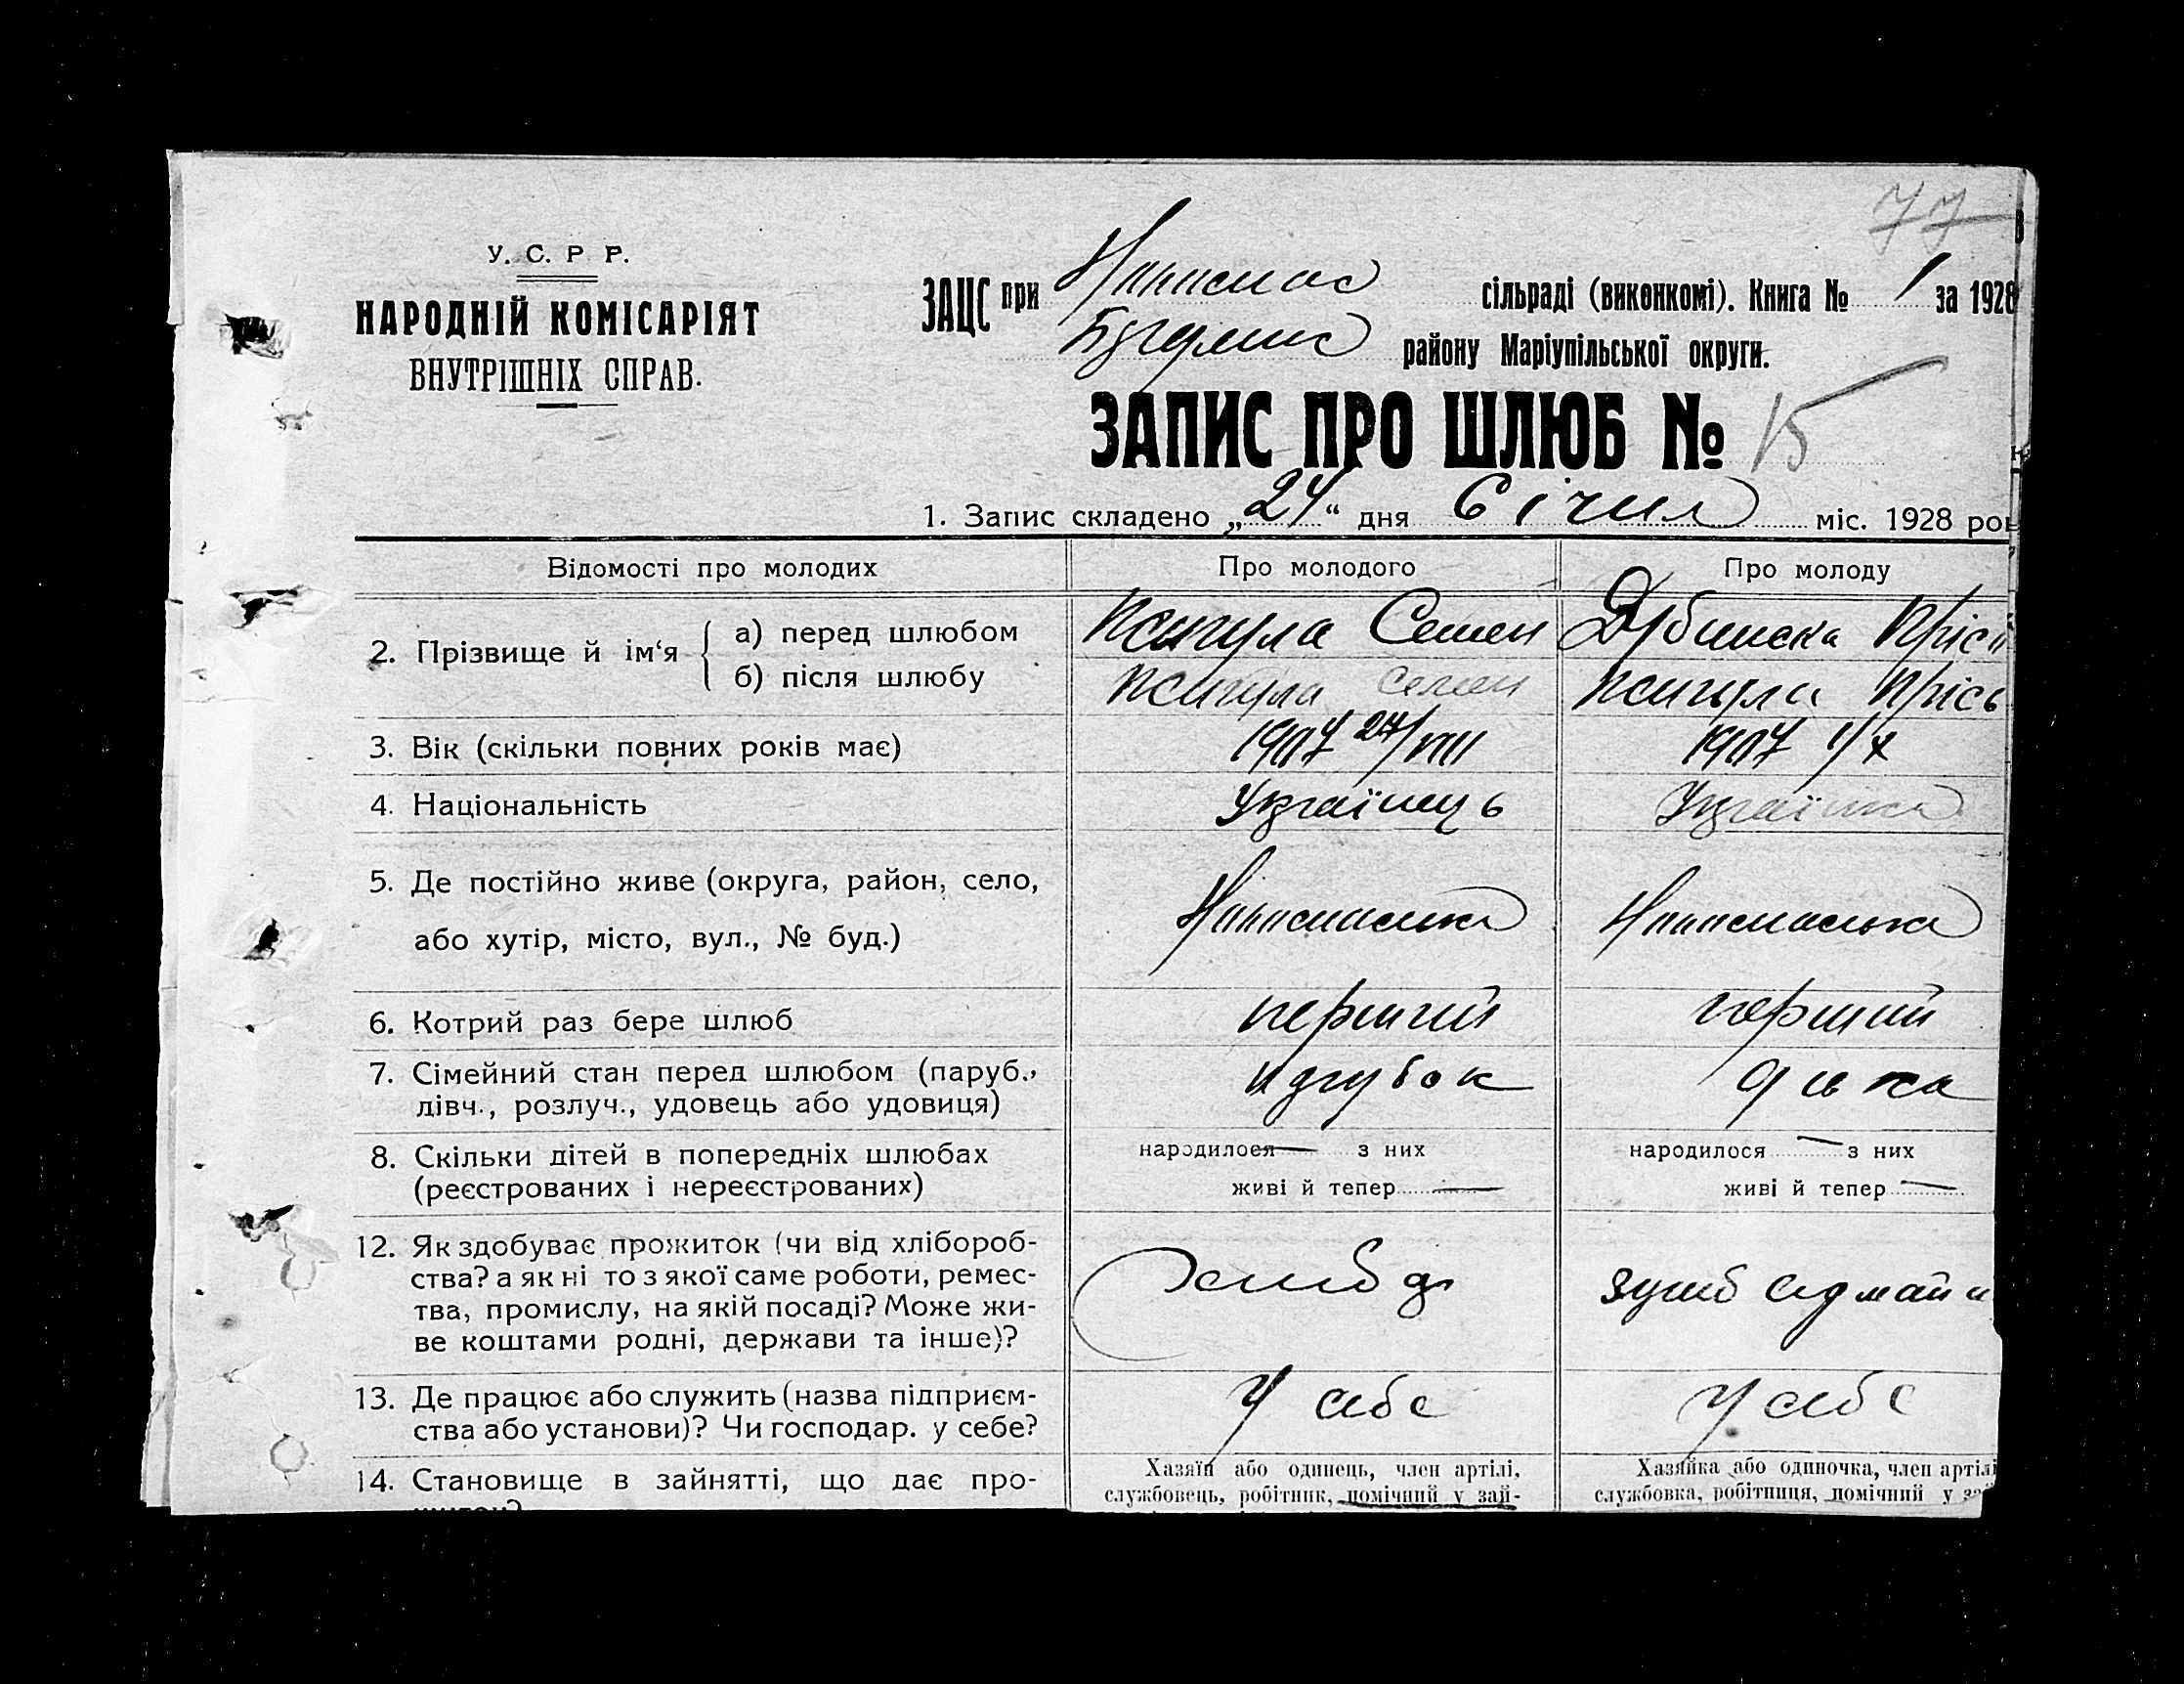 77
У. С. Р Р.
НАРОДНІЙ КОМІСАРІЯТ
ВНУТРІШНІХ СПРАВ.
ЗАЦС при сільраді (виконкомі). Книга № 1 за 1928
району Маріупільської округи.
ЗАПИС ПРО ШЛЮБ № 15
1. Запис складено „24“ дня Січня міс. 1928 рок
Відомості про молодих
Про молодого
Про молоду
2. Прізвище й ім‘я
а) перед шлюбом
Семен
б) після шлюбу
Семен
3. Вік (скільки повних років має)
1907 27/VIII
1907 1/X
4. Національність
Українець
Українка
5. Де постійно живе (округа, район, село,
або хутір, місто, вул., № буд.)
6. Котрий раз бере шлюб
перший
перший
7. Сімейний стан перед шлюбом (паруб.,
дівч., розлуч., удовець або удовиця)
парубок
дівка
8. Скільки дітей в попередніх шлюбах
(реєстрованих і нереєстрованих)
народилося — з них
живі й тепер —
народилося — з них
живі й тепер —
12. Як здобуває прожиток (чи від хлібороб-
ства? а як ні то з якої саме роботи, ремес-
тва, промислу, на якій посаді? Може жи-
ве коштами родні, держави та інше)?
13. Де працює або служить (назва підприєм-
ства або установи)? Чи господар. у себе?
У себе
У себе
14. Становище в зайнятті, що дає про-
Хазяїн або одинець, член артілі,
службовець, робітник, помічний у зай-
Хазяйка або одиночка, член артілі
службовка, робітниця, помічний у